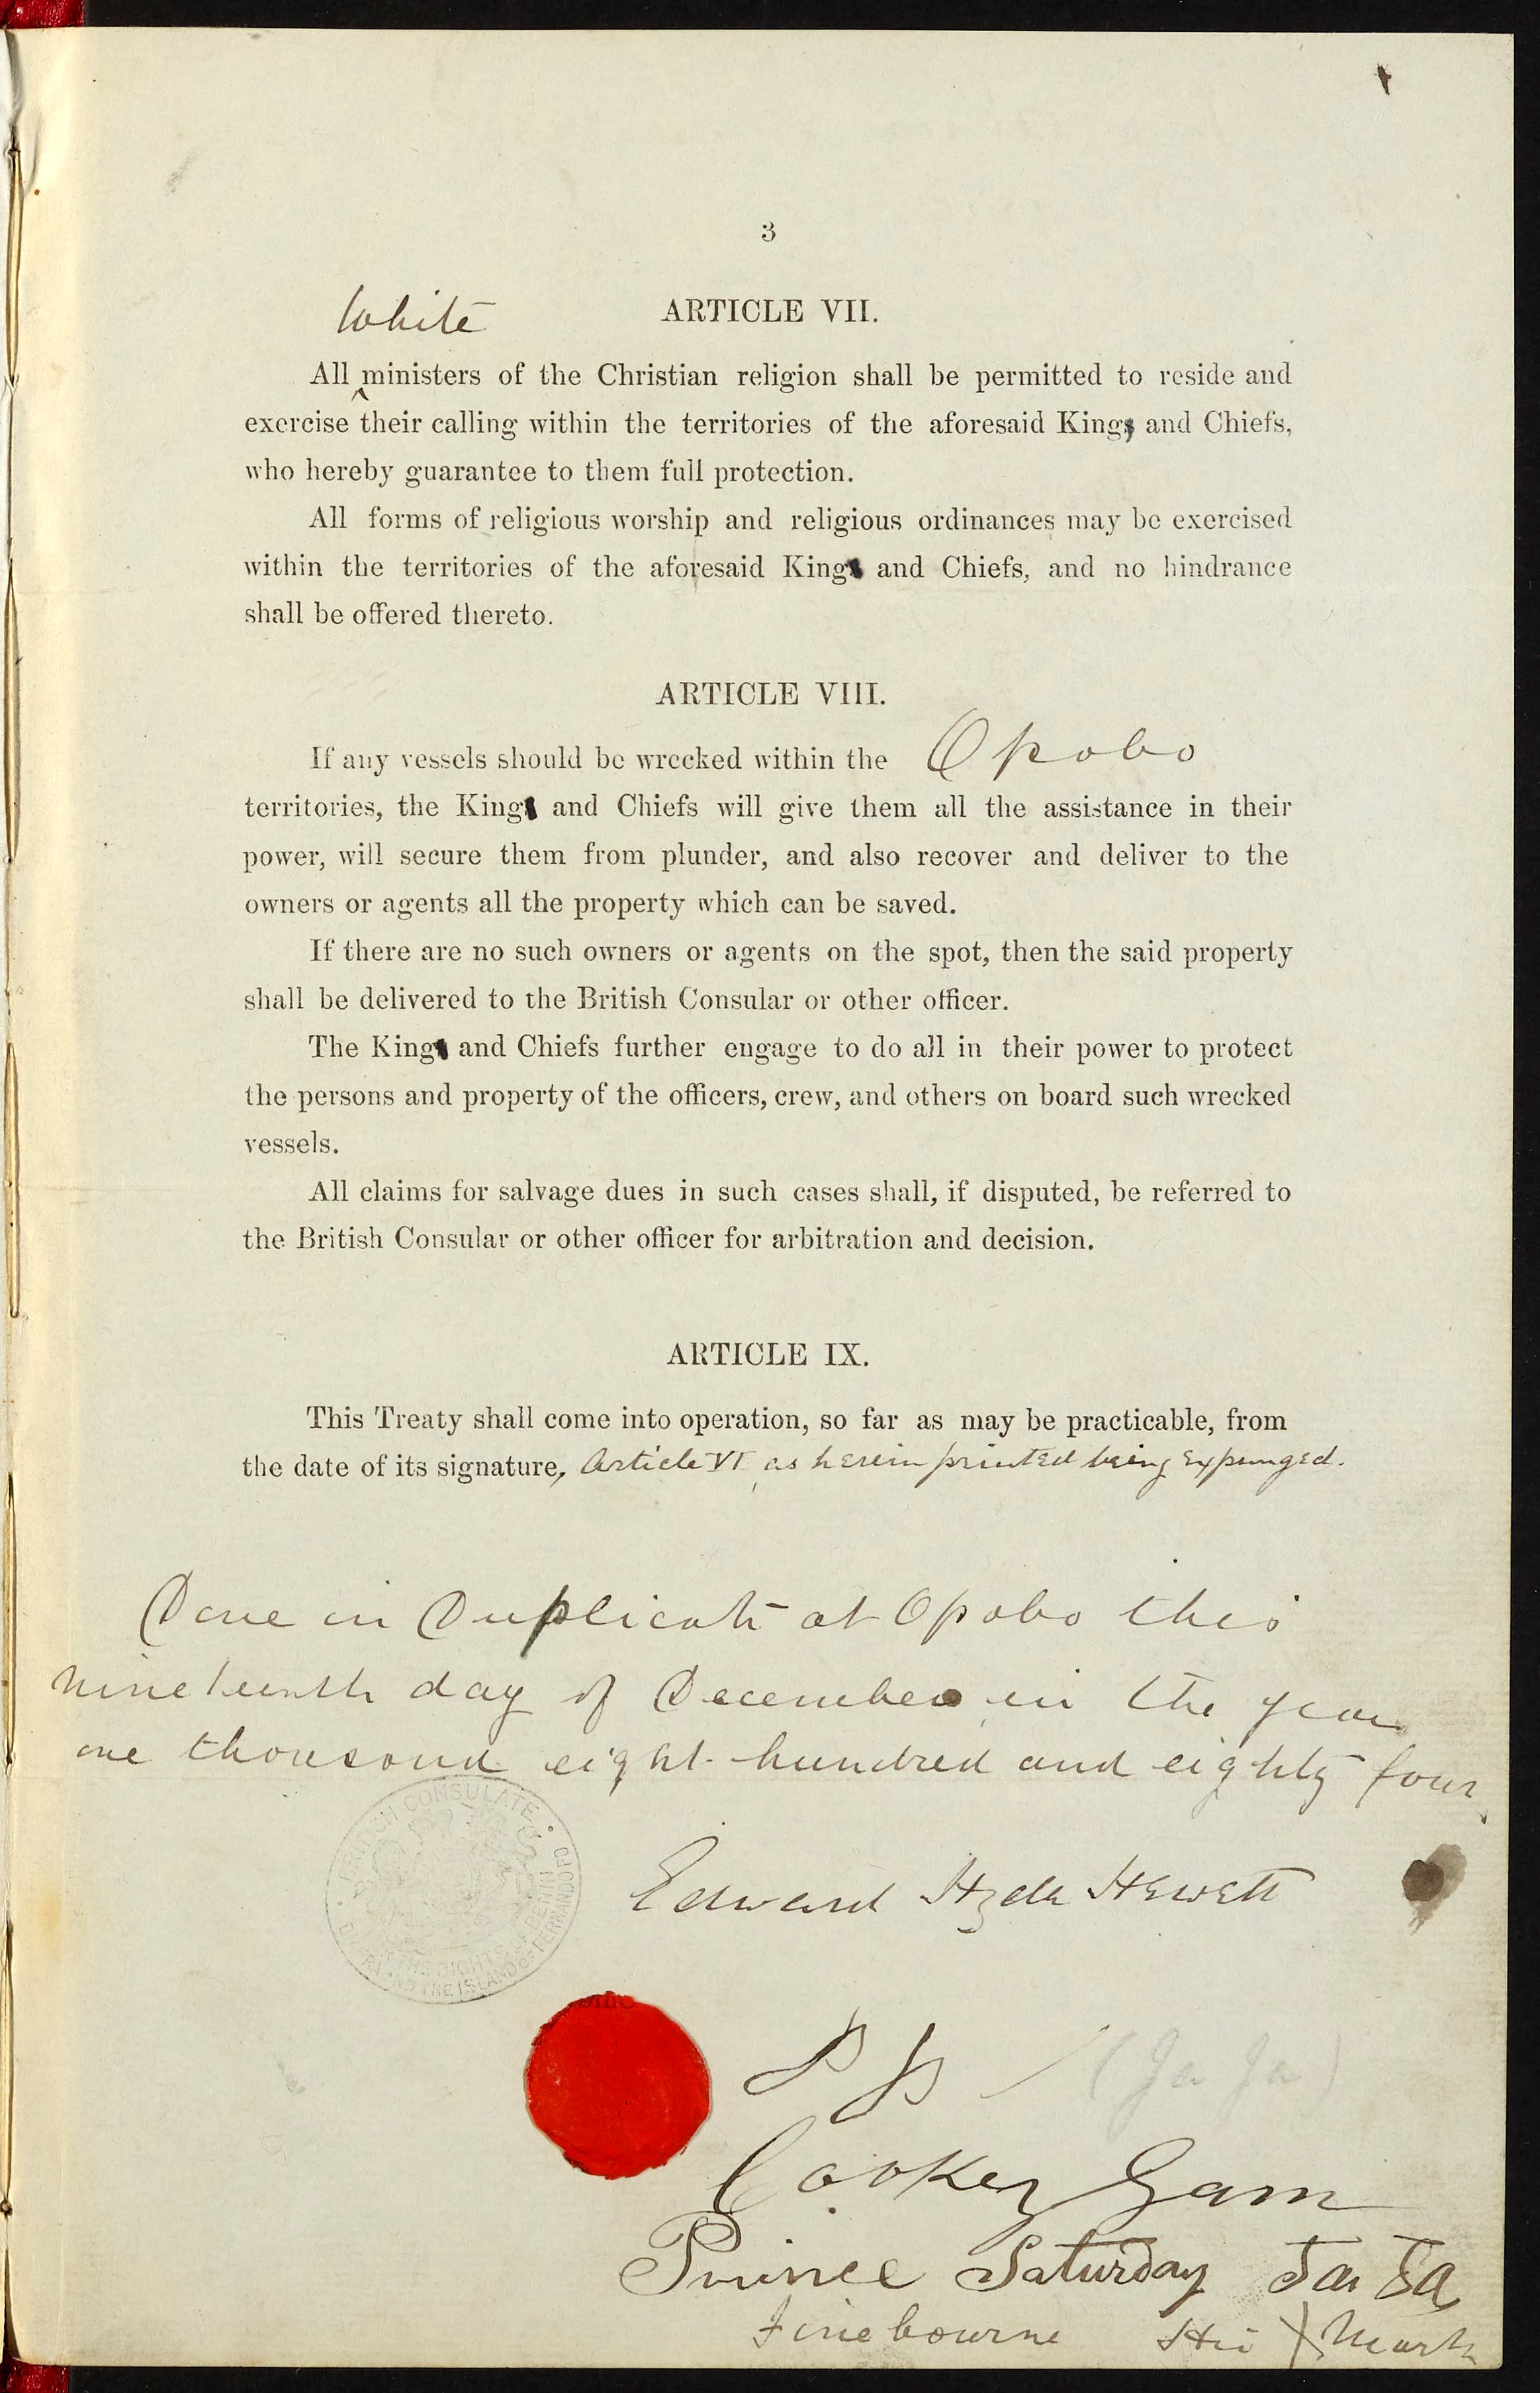 3
White
ARTICLE VII.
All ministers of the Christian religion shall be permitted to reside and
exercise their calling within the territories of the aforesaid King and Chiefs,
who hereby guarantee to them full protection.
All forms of religious worship and religious ordinances may be exercised
within the territories of the aforesaid King and Chiefs, and no hindrance
shall be offered thereto.
ARTICLE VIII.
If any vessels should be wrecked within the Opobo
territories, the King and Chiefs will give them all the assistance in their
power, will secure them from plunder, and also recover and deliver to the
owners or agents all the property which can be saved.
If there are no such owners or agents on the spot, then the said property
shall be delivered to the British Consular or other officer.
The King and Chiefs further engage to do all in their power to protect
the persons and property of the officers, crew, and others on board such wrecked
vessels.
All claims for salvage dues in such cases shall, if disputed, be referred to
the British Consular or other officer for arbitration and decision.
ARTICLE IX.
This Treaty shall come into operation, so far as may be practicable, from
the date of its signature, Article VI as herein printed being expunged.
Done in Duplicate at Opobo this
nineteenth day of December in the year
one thousand eight hundred and eighty four
BRITISH CONSULATE
THE BIGHTS OF BENIN
BIAFRA AND THE ISLAND OF FERNANDO PO
Edward Hyde Hewett
(Ja Ja)
Cookey Gam
Prince Saturday Ja Ja
Finebourne His X Mark